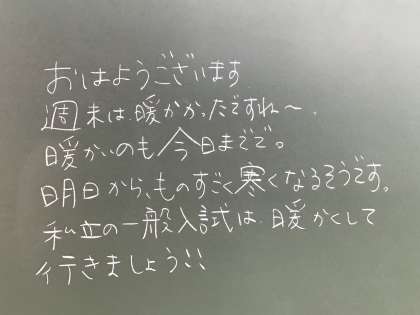 おはようございます
週末は、暖かかったですね〜.
暖かいのも今日までで。
明日から、ものすごく寒くなるそうです。
私立の一般入試は、暖かくして
行きましょう!!